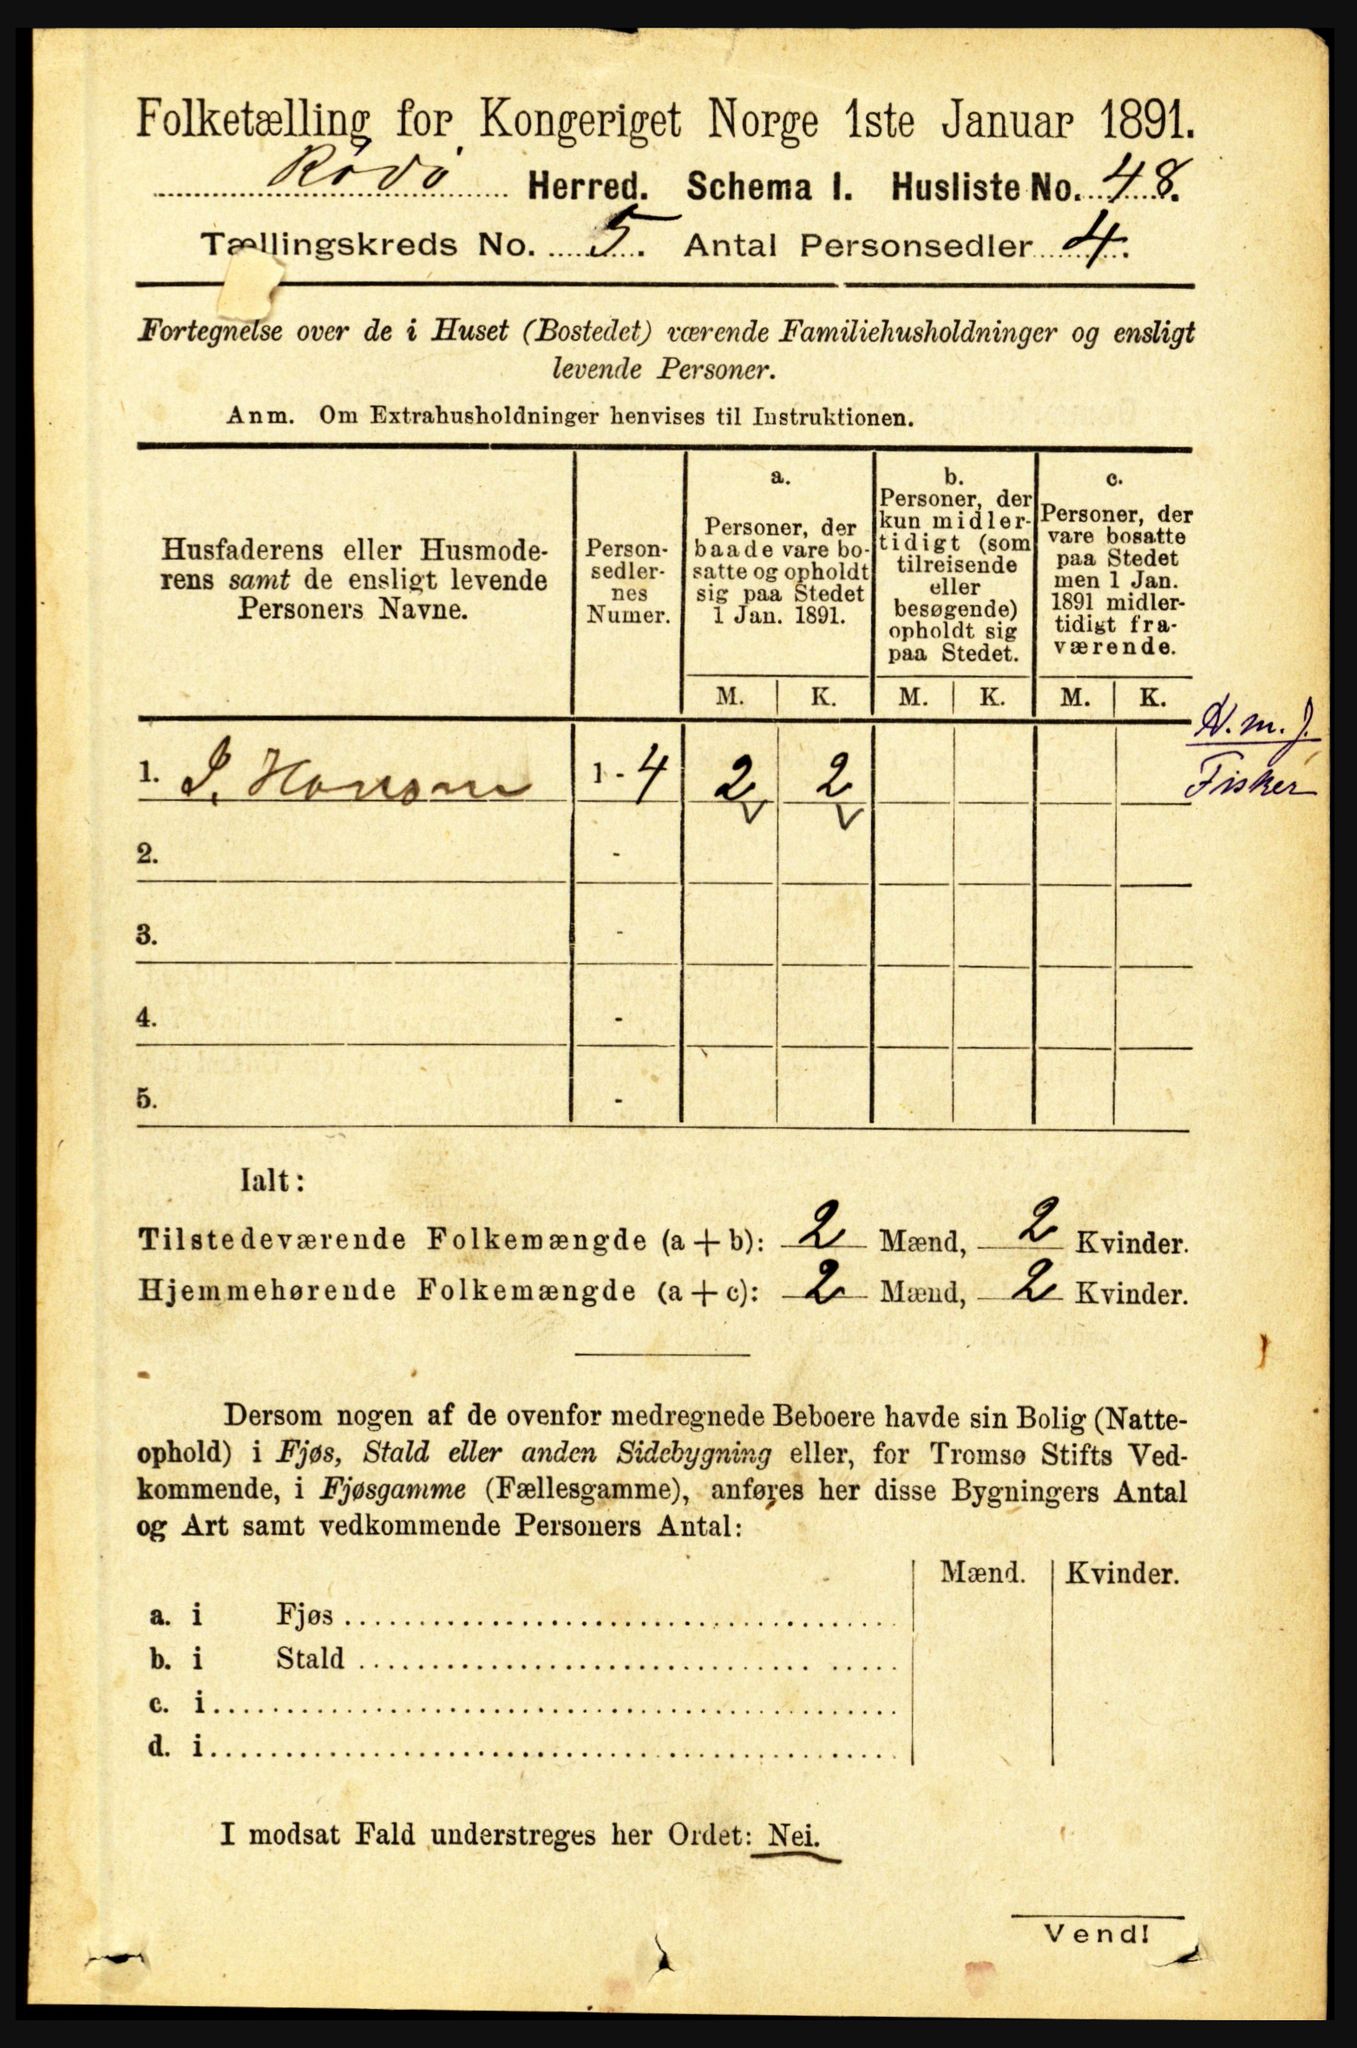 Folketælling for Kongeriget Norge 1ste Januar 1891.
Rødø Herred. Schema I. Husliste No. 48.
Tællingskreds No. 5. Antal Personsedler 4.
Fortegnelse over de i Huset (Bostedet) værende Familiehusholdninger og ensligt
levende Personer.
Anm. Om Extrahusholdninger henvises til Instruktionen.
Husfaderens eller Husmode-
rens samt de ensligt levende
Personers Navne.
Person-
sedler-
nes
Numer.
a.
Personer, der
baade vare bo-
satte og opholdt
sig paa Stedet
1 Jan. 1891.
b.
Personer, der
kun midler-
tidigt (som
tilreisende
eller
besøgende)
opholdt sig
paa Stedet.
c.
Personer, der
vare bosatte
paa Stedet
men 1 Jan.
1891 midler-
tidigt fra-
værende.
M. K. M. K. M. K.
N. m. J.
Fisker
1. J. Hanson 1 - 4 2 2
2. -
3. -
4. -
5. -
Ialt:
Tilstedeværende Folkemængde (a + b): 2 Mænd, 2 Kvinder.
Hjemmehørende Folkemængde (a + c): 2 Mænd, 2 Kvinder.
Dersom nogen af de ovenfor medregnede Beboere havde sin Bolig (Natte-
ophold) i Fjøs, Stald eller anden Sidebygning eller, for Tromsø Stifts Ved-
kommende, i Fjøsgamme (Fællesgamme), anføres her disse Bygningers Antal
og Art samt vedkommende Personers Antal:
Mænd. Kvinder.
a. i Fjøs
b. i Stald
c. i
d. i
I modsat Fald understreges her Ordet: Nei.
Vend!